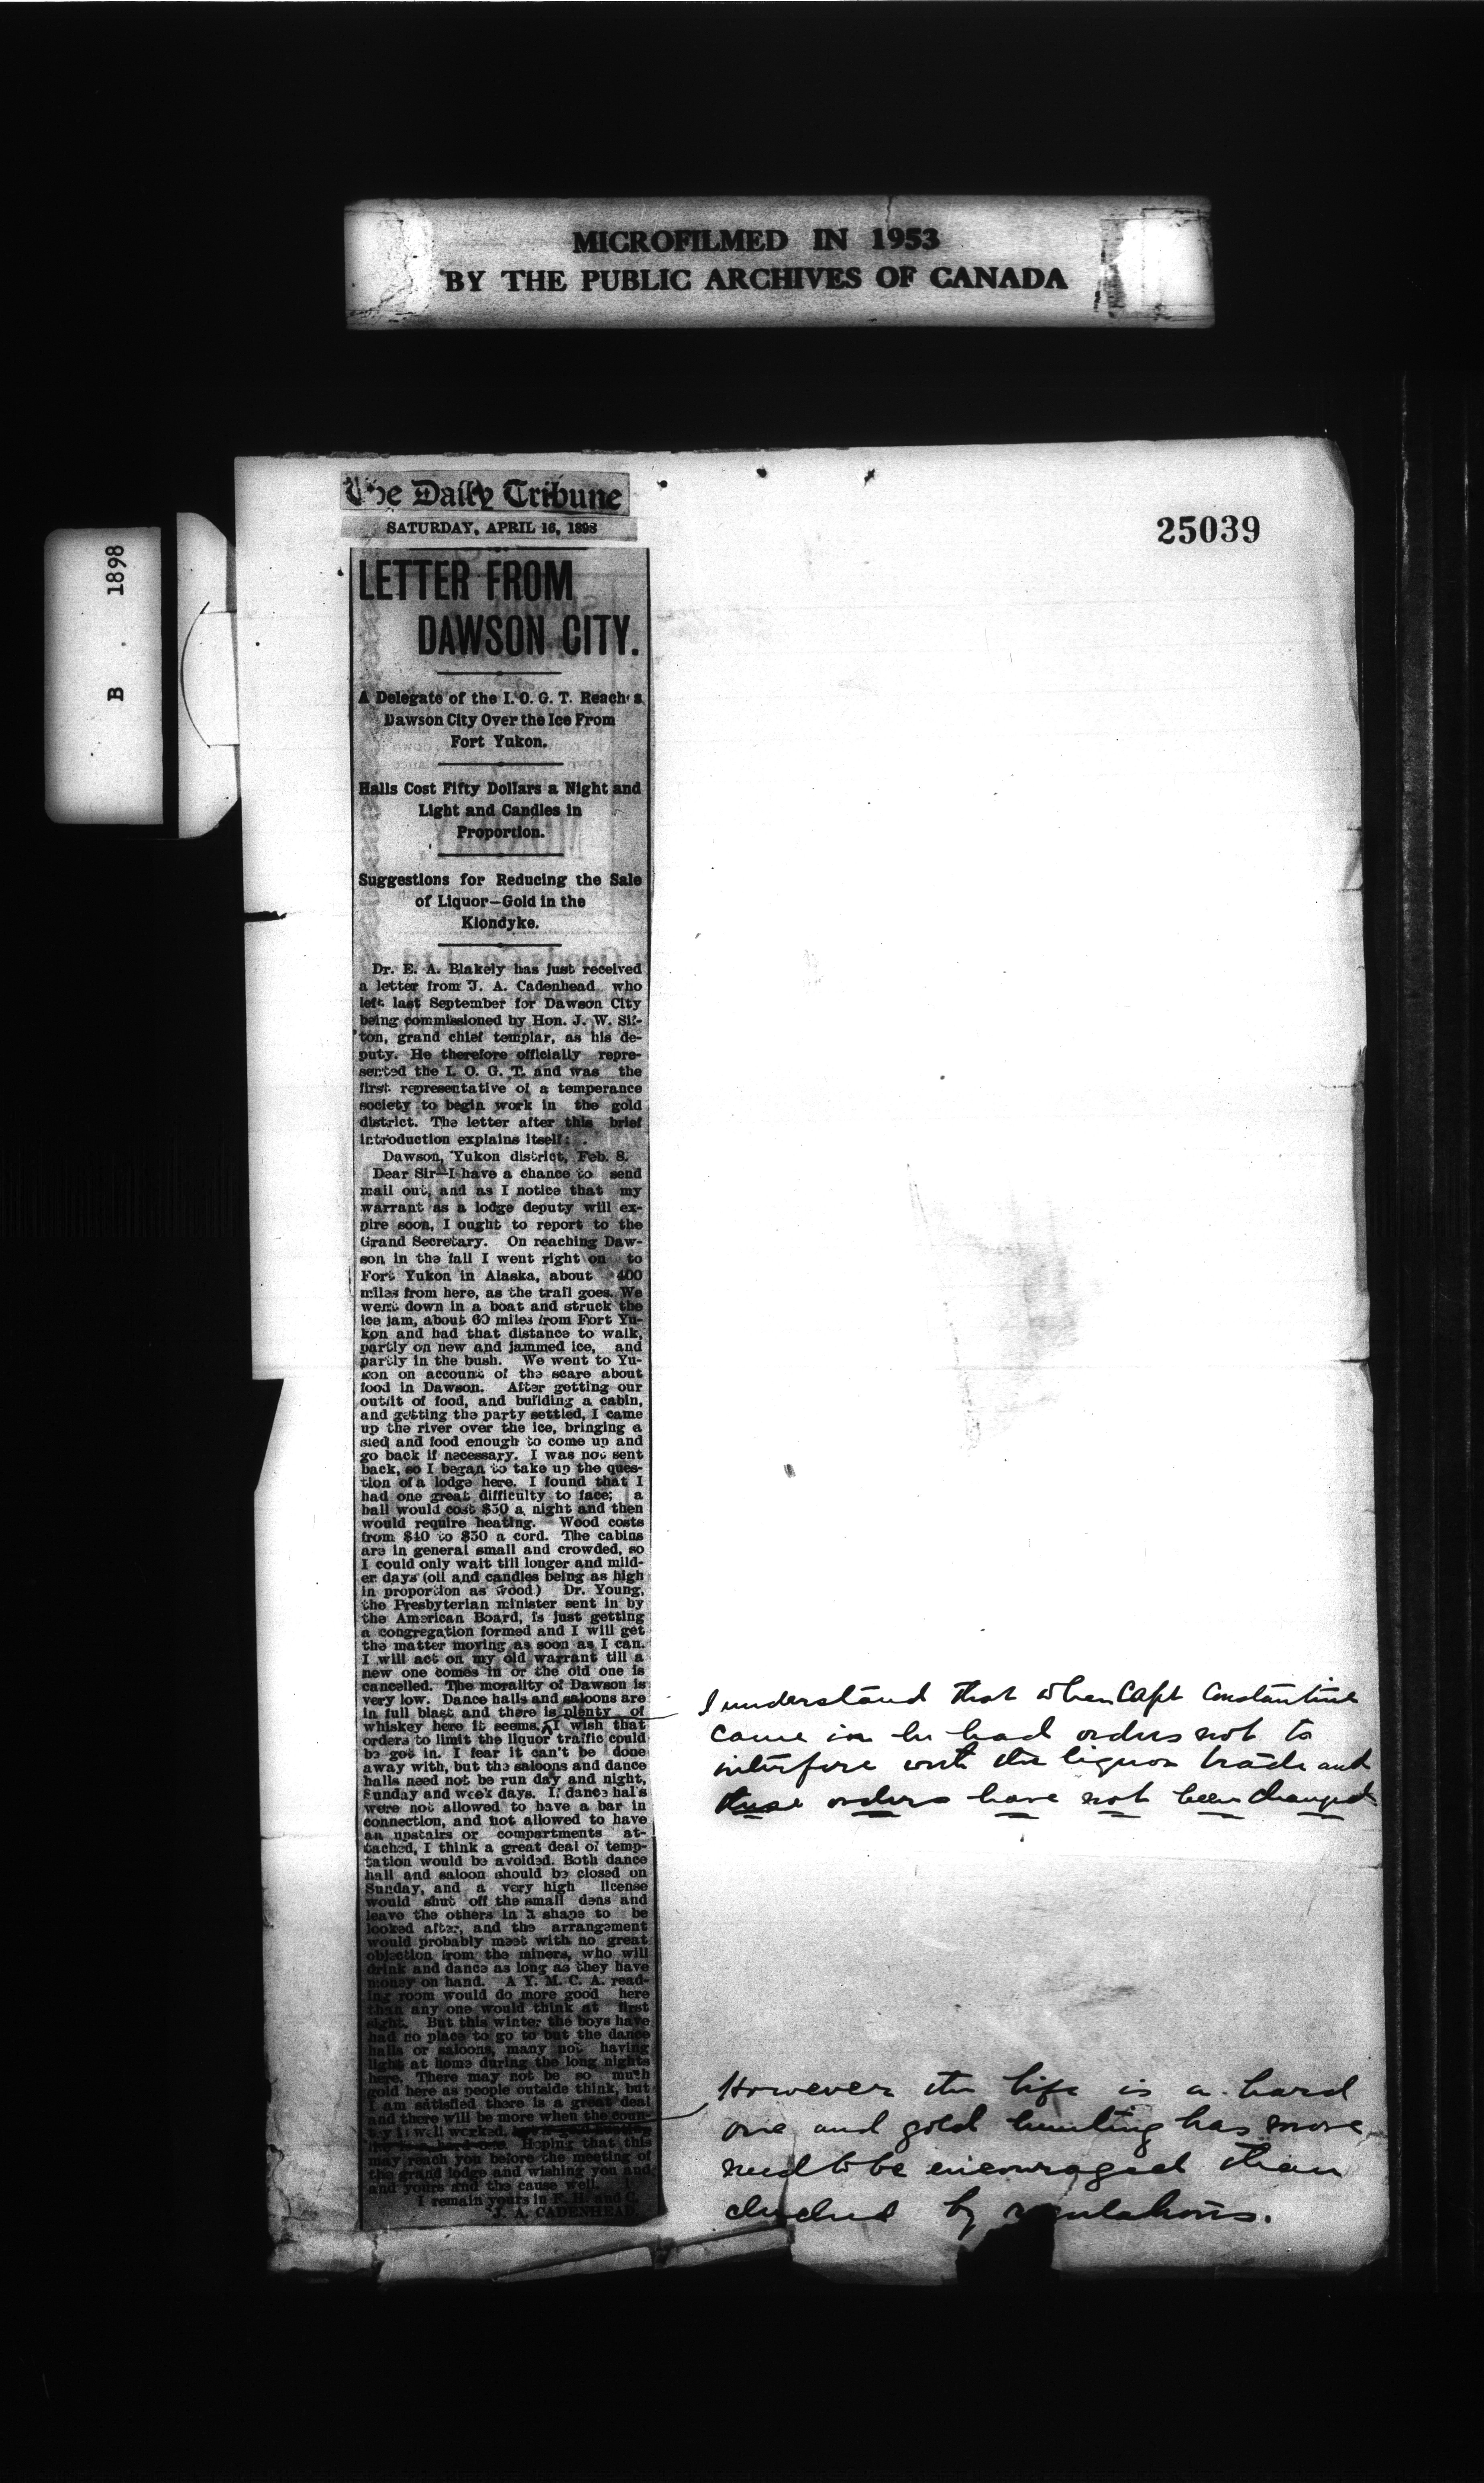 MICROFILMED IN 1953
BY THE PUBLIC ARCHIVES OF CANADA
B 1898
25039
The Daily Tribune
SATURDAY, APRIL 16, 1898
LETTER FROM
DAWSON CITY.
A Delegate of the I. O. G. T. Reaches
Dawson City Over the Ice From
Fort Yukon.
Halls Cost Fifty Dollars a Night and
Light and Candles in
Proportion.
Suggestions for Reducing the Sale
of Liquor—Gold in the
Klondyke.
Dr. E. A. Blakely has just received
a letter from J. A. Cadenhead who
left last September for Dawson City
being commissioned by Hon. J. W. Sif-
ton, grand chief templar, as his de-
puty. He therefore officially repre-
sented the I. O. G. T. and was the
first representative of a temperance
society to begin work in the gold
district. The letter after this brief
introduction explains itself:
Dawson, Yukon district, Feb. 8.
Dear Sir—I have a chance to send
mail out, and as I notice that my
warrant as a lodge deputy will ex-
pire soon, I ought to report to the
Grand Secretary. On reaching Daw-
son in the fall I went right on to
Fort Yukon in Alaska, about 400
miles from here, as the trail goes. We
went down in a boat and struck the
ice jam, about 60 miles from Fort Yu-
kon and had that distance to walk,
partly on new and jammed ice, and
partly in the bush. We went to Yu-
kon on account of the scare about
food in Dawson. After getting our
outfit of food, and building a cabin,
and getting the party settled, I came
up the river over the ice, bringing a
sled and food enough to come up and
go back if necessary. I was not sent
back, so I began to take up the ques-
tion of a lodge here. I found that I
had one great difficulty to face; a
hall would cost $50 a night and then
would require heating. Wood costs
from $40 to $50 a cord. The cabins
are in general small and crowded, so
I could only wait till longer and mild-
er days (oil and candles being as high
in proportion as wood) Dr. Young,
the Presbyterian minister sent in by
the American Board, is just getting
a congregation formed and I will get
the matter moving as soon as I can.
I will act on my old warrant till a
new one comes in or the old one is
cancelled. The morality of Dawson is
very low. Dance halls and saloons are
in full blast and there is plenty of
whiskey here it seems. I wish that
orders to limit the liquor traffic could
be got in. I fear it can't be done
away with, but the saloons and dance
halls need not be run day and night,
Sunday and week days. If dance halls
were not allowed to have a bar in
connection, and not allowed to have
an upstairs or compartments at-
tached, I think a great deal of temp-
tation would be avoided. Both dance
hall and saloon should be closed on
Sunday, and a very high license
would shut off the small dens and
leave the others in a shape to be
looked after, and the arrangement
would probably meet with no great
objection from the miners, who will
drink and dance as long as they have
money on hand. A Y. M. C. A. read-
ing room would do more good here
than any one would think at first
sight. But this winter the boys have
had no place to go to but the dance
halls or saloons, many not having
light at home during the long nights
here. There may not be so much
gold here as people outside think, but
I am satisfied there is a great deal
and there will be more when the coun-
try is well worked.
Hoping that this
may reach you before the meeting of
the grand lodge and wishing you and
and yours and the cause well.
I remain yours in F. H. and C.
J. A. CADENHEAD.
I understand that when Capt Constantine
came in he had orders not to
interfere with the liquor trade and
these orders have not been changed.
However the life is a hard
one and gold hunting has more
need to be encouraged than
checked by regulations.